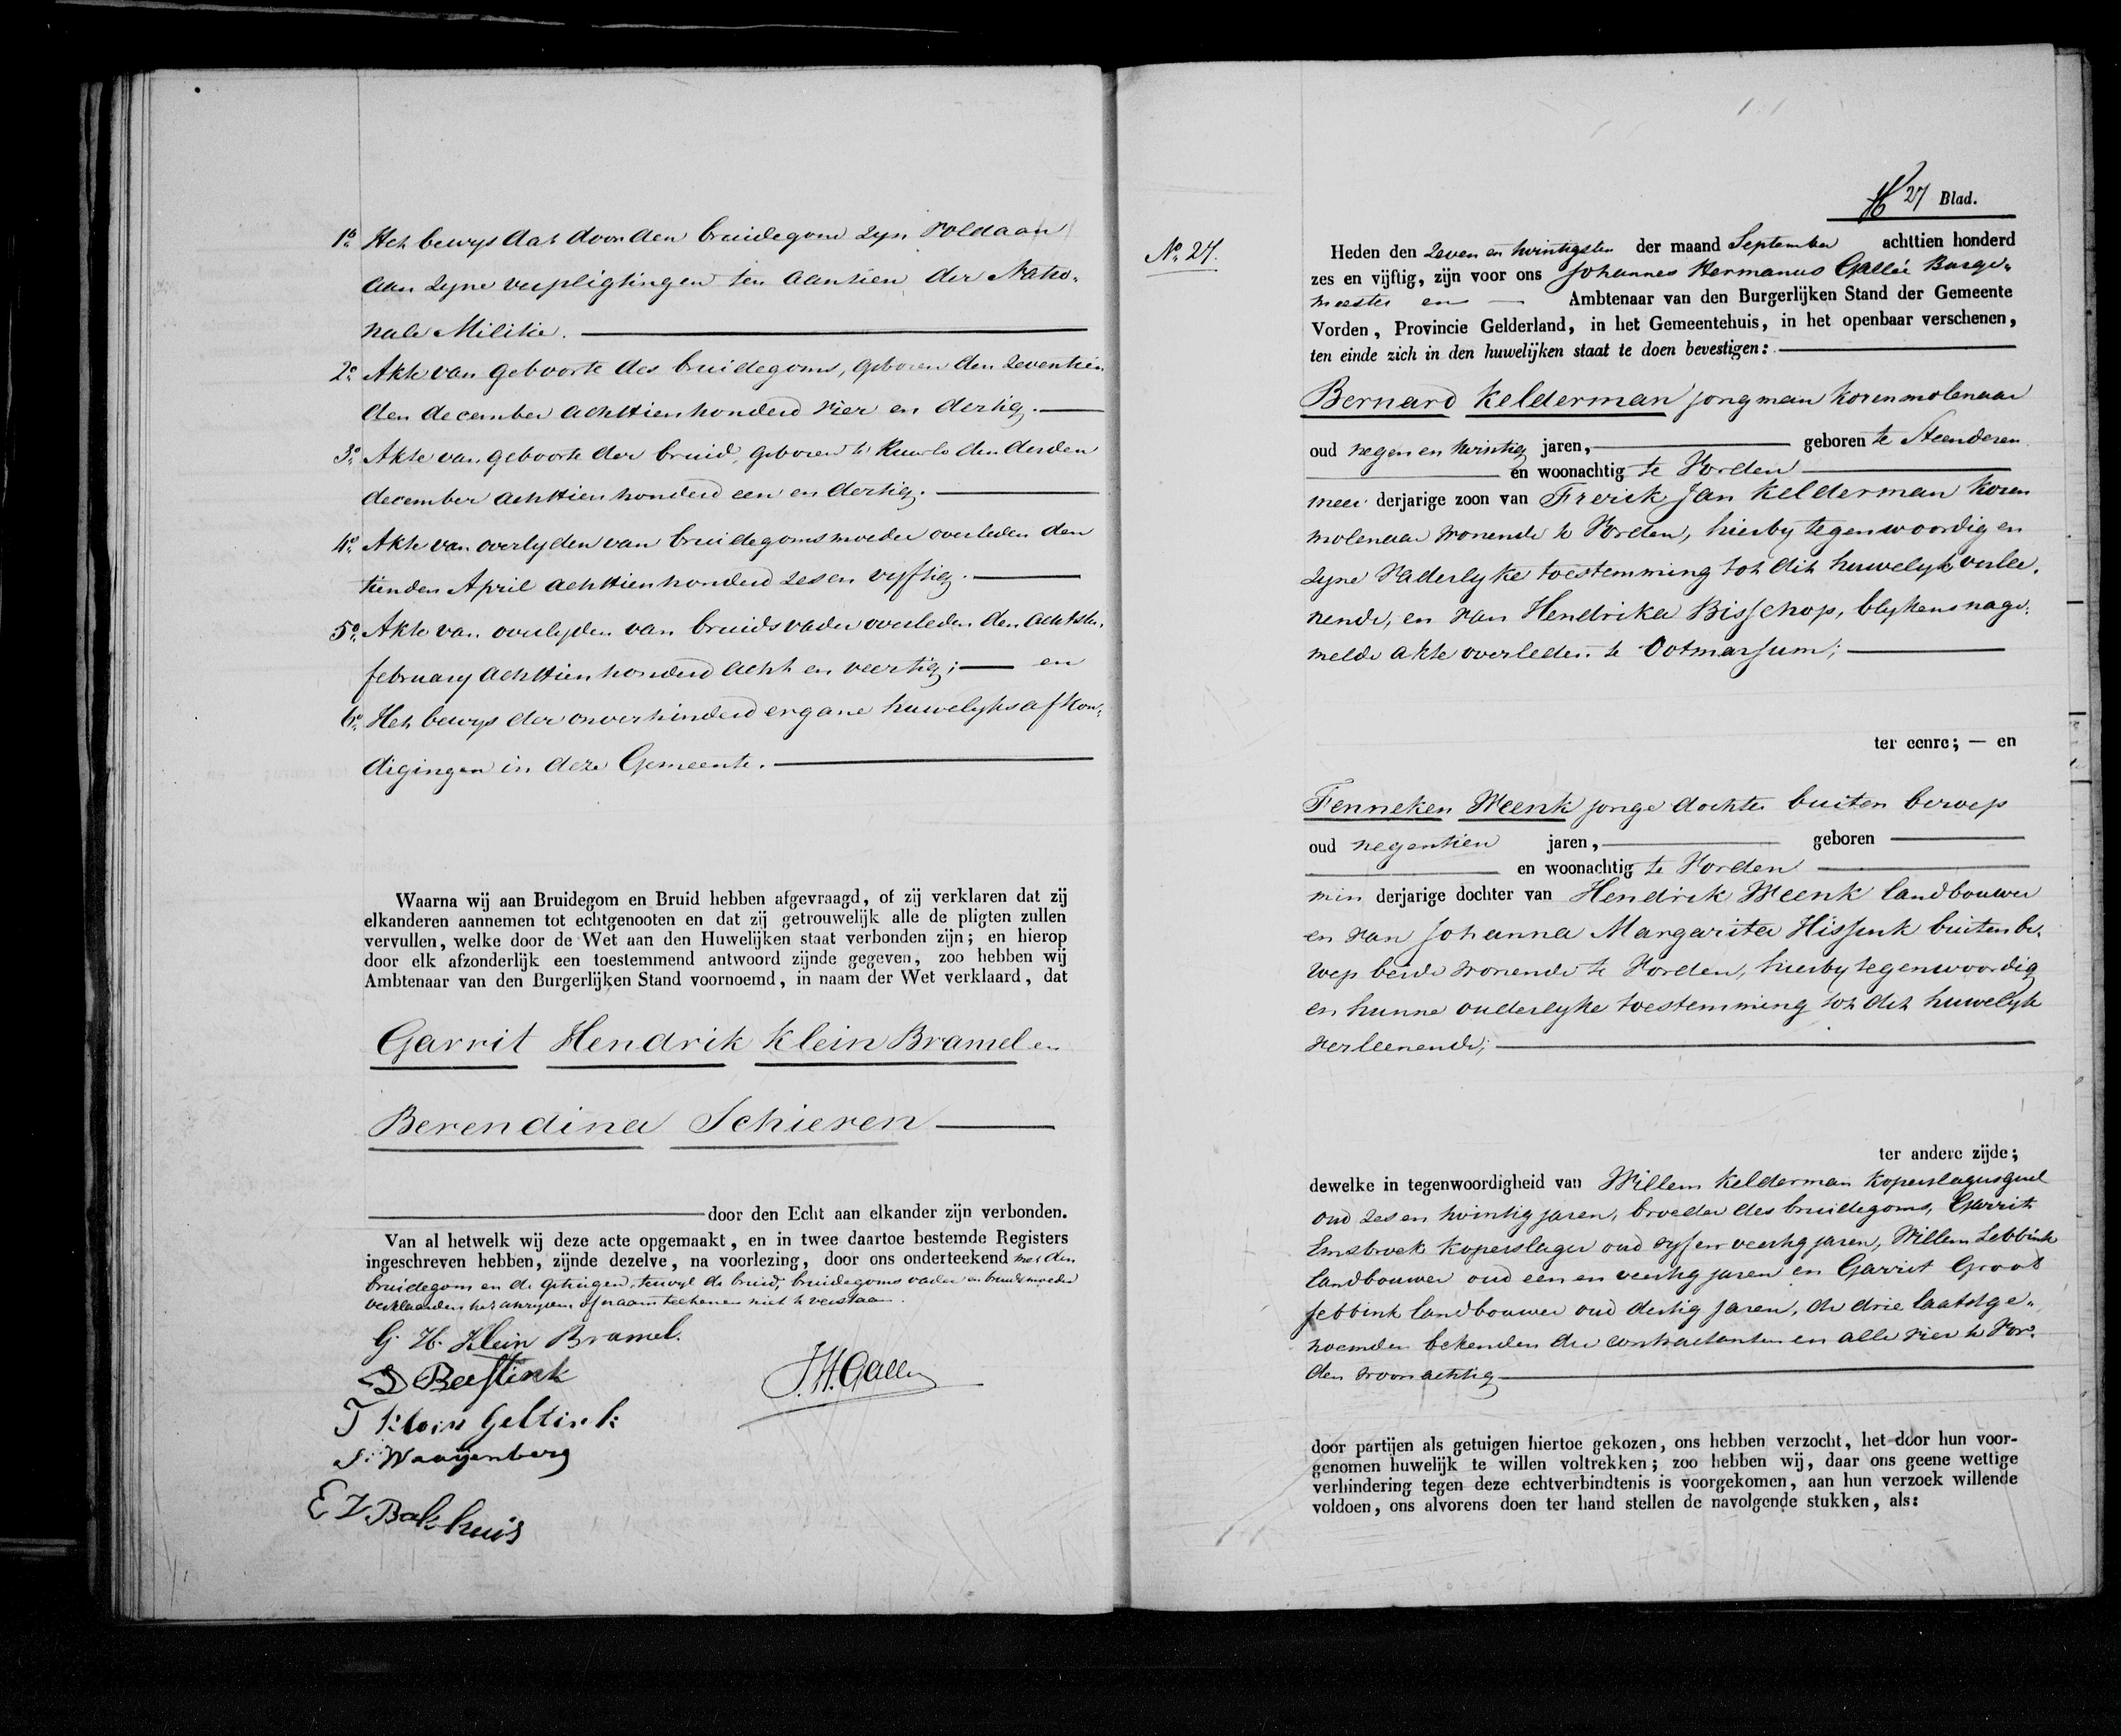 1o. Het bewys dat door den bruidegom zyn voldaan
aan zyne verpligtingen ten aanzien der Natio-
nale Militie.
2o. Akte van geboorte des bruidegoms, geboren den zeventien
den december achttienhonderd vier en dertig.
3o. Akte van geboorte der bruid, geboren te Ruurlo den derden
december achttienhonderd een en dertig.
4o. Akte van overlyden van bruidegoms moeder overleden den
tienden April achttienhonderd zes en vyftig.
5o. Akte van overlyden van bruids vader overleden den achtsten
february achttienhonderd acht en veertig; en
6o. Het bewys der onverhinderd ergane huwelyksafkon-
digingen in deze Gemeente.
Waarna wij aan Bruidegom en Bruid hebben afgevraagd, of zij verklaren dat zij
elkanderen aannemen tot echtgenooten en dat zij getrouwelijk alle de pligten zullen
vervullen, welke door de Wet aan den Huwelijken staat verbonden zijn; en hierop
door elk afzonderlijk een toestemmend antwoord zijnde gegeven, zoo hebben wij
Ambtenaar van den Burgerlijken Stand voornoemd, in naam der Wet verklaard, dat
Garrit Hendrik Klein Bramel en
Berendina Schieven
door den Echt aan elkander zijn verbonden.
Van al hetwelk wij deze acte opgemaakt, en in twee daartoe bestemde Registers
ingeschreven hebben, zijnde dezelve, na voorlezing, door ons onderteekend met den
bruidegom en de getuigen, terwyl de bruid, bruidegoms vader en bruids moeder
verklaarden het schryven of naamteekenen niet te verstaan.
G. H. Klein Bramel.
J. H. Gallée
T Klein Geltink
Waayenberg
E Z Bakhuis
27 Blad.
No. 27.
Heden den zeven en twintigsten der maand September achttien honderd
zes en vijftig, zijn voor ons Johannes Hermanus Gallée Burge-
meester en Ambtenaar van den Burgerlijken Stand der Gemeente
Vorden, Provincie Gelderland, in het Gemeentehuis, in het openbaar verschenen,
ten einde zich in den huwelijken staat te doen bevestigen:
Bernard Kelderman jongman korenmolenaar
oud negen en twintig jaren, geboren te Steenderen
en woonachtig te Vorden
meer derjarige zoon van Frerik Jan Kelderman koren
molenaar wonende te Vorden, hierby tegenwoordig en
zyne vaderlyke toestemming tot dit huwelyk verlee-
nende, en van Hendrika Bisschop, blykens nage-
melde akte overleden te Ootmarssum;
ter eenre; — en
Fenneken Weenk jonge dochter buiten beroep
oud negentien jaren, geboren
en woonachtig te Vorden
min derjarige dochter van Hendrik Weenk landbouwer
en van Johanna Margarita Hissink buiten be-
roep beide wonende te Vorden, hierby tegenwoordig
en hunne ouderlyke toestemming tot dit huwelyk
verleenende;
ter andere zijde;
dewelke in tegenwoordigheid van Willem Kelderman koperslagersgezel
oud zes en twintig jaren, broeder des bruidegoms, Garrit
Emsbroek koperslager oud vyf en veertig jaren, Willem Lebbink
landbouwer oud een en veertig jaren en Garrit Groot
Jebbink landbouwer oud dertig jaren, de drie laatstge-
noemden bekenden der contractanten en alle vier te Vor-
den woonachtig
door partijen als getuigen hiertoe gekozen, ons hebben verzocht, het door hun voor-
genomen huwelijk te willen voltrekken; zoo hebben wij, daar ons geene wettige
verhindering tegen deze echtverbindtenis is voorgekomen, aan hun verzoek willende
voldoen, ons alvorens doen ter hand stellen de navolgende stukken, als: